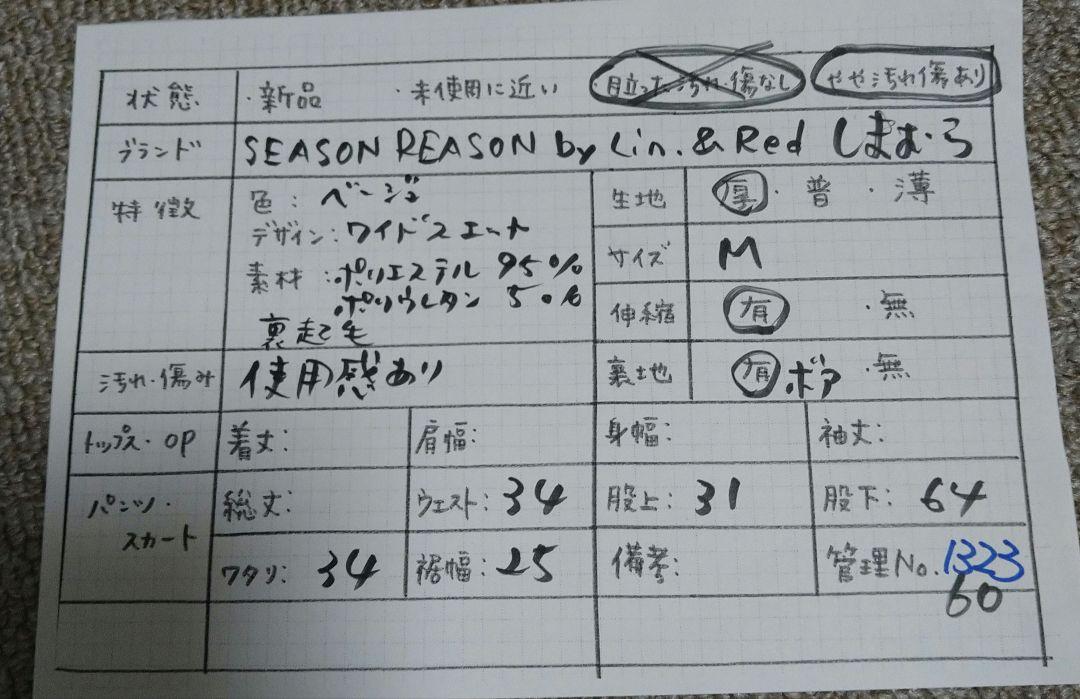 状態 ・新品 ・未使用に近い 目立った汚れ・傷なし やや汚れ傷あり
ブランド SEASON REASON by Lin. & Red しまむら
特徴 色：ベージュ 生地 厚・普・薄
デザイン：ワイドスエット
素材：ポリエステル 95% サイズ M
ポリウレタン 5% 伸縮 有・無
裏起毛
汚れ・傷み 使用感あり 裏地 有 ボア ・無
トップス・OP 着丈： 肩幅： 身幅： 袖丈：
パンツ・ 総丈： ウェスト：34 股上：31 股下：64
スカート
ワタリ：34 裾幅：25 備考： 管理No.1323
60